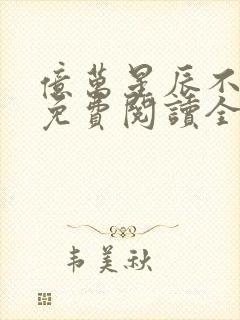 億萬星辰不
免費閱讀全
韦美秋